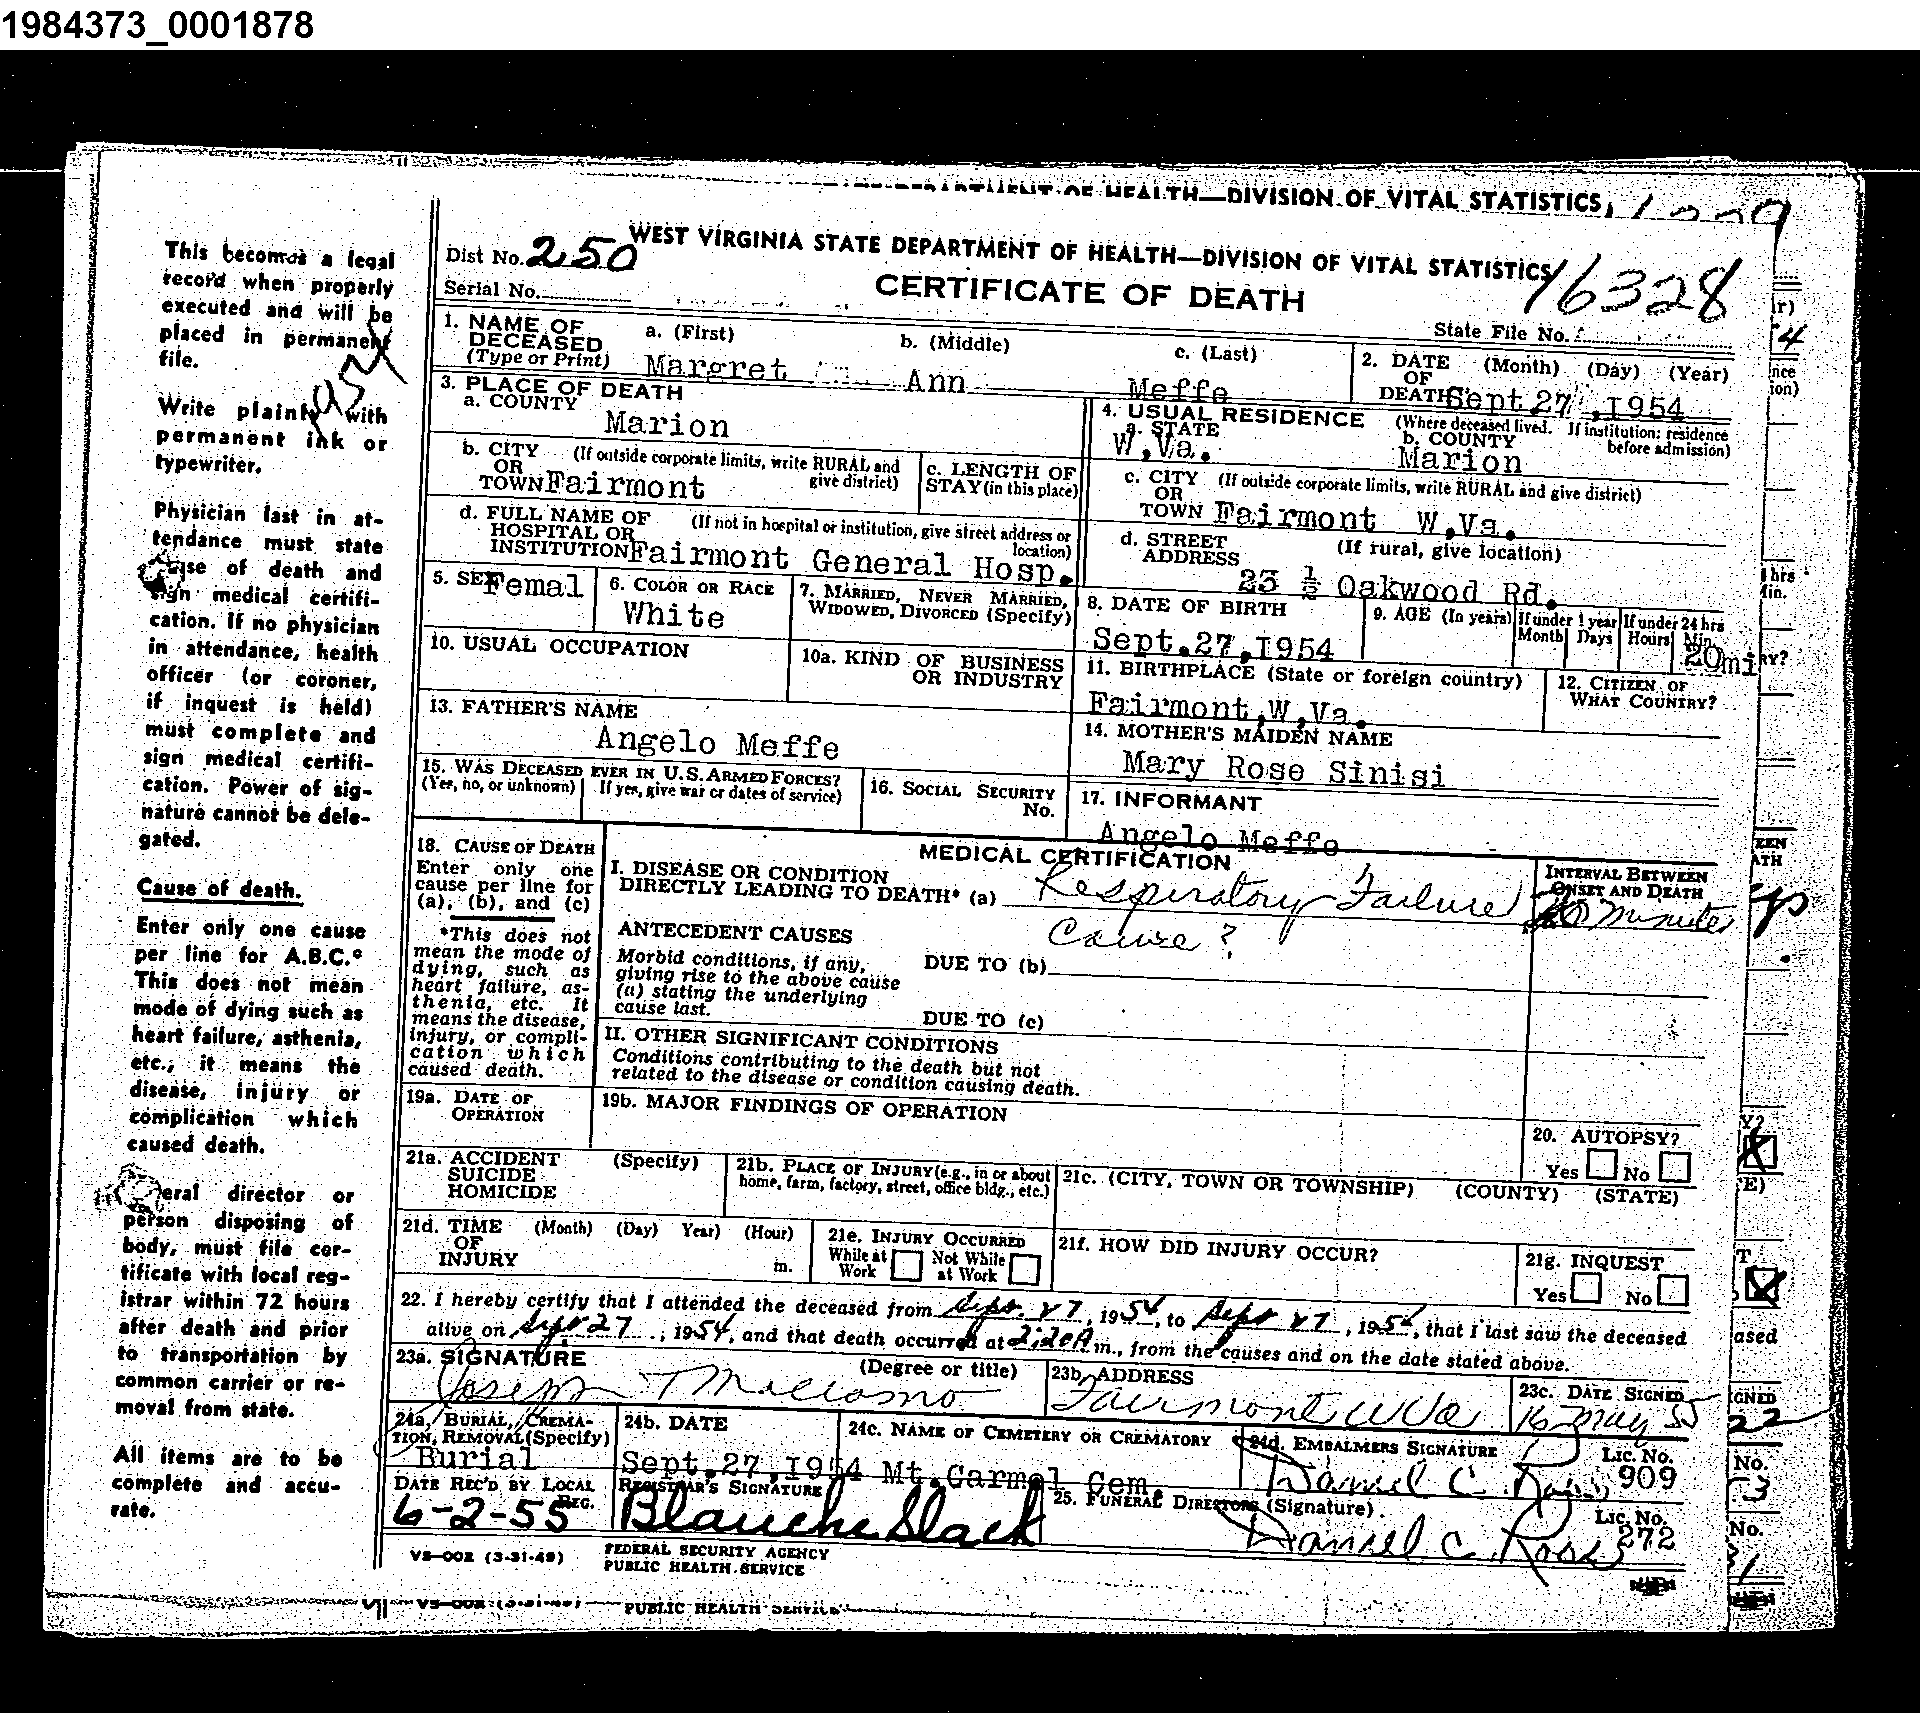 1984373_0001878
DEPARTMENT OF HEALTH—DIVISION OF VITAL STATISTICS
This becomes a legal
record when properly
executed and will be
placed in permanent
file.
Write plainly with
permanent ink or
typewriter.
Physician last in at-
tendance must state
cause of death and
sign medical certifi-
cation. If no physician
in attendance, health
officer (or coroner,
if inquest is held)
must complete and
sign medical certifi-
cation. Power of sig-
nature cannot be dele-
gated.
Cause of death.
Enter only one cause
per line for A.B.C.*
This does not mean
mode of dying such as
heart failure, asthenia,
etc., it means the
disease, injury or
complication which
caused death.
eral director or
person disposing of
body, must file cer-
tificate with local reg-
istrar within 72 hours
after death and prior
to transportation by
common carrier or re-
moval from state.
All items are to be
complete and accu-
rate.
Dist No. 250 WEST VIRGINIA STATE DEPARTMENT OF HEALTH—DIVISION OF VITAL STATISTICS
Serial No. CERTIFICATE OF DEATH 16328
State File No.
1. NAME OF DECEASED (Type or Print) a. (First) b. (Middle) c. (Last)
Margret Ann Meffe
2. DATE OF DEATH (Month) (Day) (Year)
Sept 27, 1954
3. PLACE OF DEATH
a. COUNTY Marion
b. CITY OR TOWN (If outside corporate limits, write RURAL and give district) Fairmont
c. LENGTH OF STAY (in this place)
d. FULL NAME OF HOSPITAL OR INSTITUTION (If not in hospital or institution, give street address or location)
Fairmont General Hosp.
4. USUAL RESIDENCE (Where deceased lived. If institution: residence before admission)
a. STATE W.Va. b. COUNTY Marion
c. CITY OR TOWN (If outside corporate limits, write RURAL and give district)
Fairmont W.Va.
d. STREET ADDRESS (If rural, give location)
23 ½ Oakwood Rd.
5. SEX Femal
6. COLOR OR RACE White
7. MARRIED, NEVER MARRIED, WIDOWED, DIVORCED (Specify)
8. DATE OF BIRTH Sept.27,1954
9. AGE (In years) If under 1 year Month Days If under 24 hrs Hours Min. 20mi
10. USUAL OCCUPATION
10a. KIND OF BUSINESS OR INDUSTRY
11. BIRTHPLACE (State or foreign country) Fairmont,W,Va.
12. CITIZEN OF WHAT COUNTRY?
13. FATHER'S NAME Angelo Meffe
14. MOTHER'S MAIDEN NAME Mary Rose Sinisi
15. WAS DECEASED EVER IN U.S. ARMED FORCES?
(Yes, no, or unknown) If yes, give war or dates of service)
16. SOCIAL SECURITY No.
17. INFORMANT Angelo Meffe
MEDICAL CERTIFICATION
18. CAUSE OF DEATH
Enter only one
cause per line for
(a), (b), and (c)
*This does not
mean the mode of
dying, such as
heart failure, as-
thenia, etc. It
means the disease,
injury, or compli-
cation which
caused death.
I. DISEASE OR CONDITION
DIRECTLY LEADING TO DEATH* (a) Respiratory Failure
INTERVAL BETWEEN ONSET AND DEATH
20 minutes
ANTECEDENT CAUSES Cause ?
Morbid conditions, if any,
giving rise to the above cause
(a) stating the underlying
cause last.
DUE TO (b)
DUE TO (c)
II. OTHER SIGNIFICANT CONDITIONS
Conditions contributing to the death but not
related to the disease or condition causing death.
19a. DATE OF OPERATION
19b. MAJOR FINDINGS OF OPERATION
20. AUTOPSY?
Yes No
21a. ACCIDENT SUICIDE HOMICIDE (Specify)
21b. PLACE OF INJURY (e.g., in or about home, farm, factory, street, office bldg., etc.)
21c. (CITY, TOWN OR TOWNSHIP) (COUNTY) (STATE)
21d. TIME OF INJURY (Month) (Day) Year) (Hour) m.
21e. INJURY OCCURRED
While at Work Not While at Work
21f. HOW DID INJURY OCCUR?
21g. INQUEST
Yes No
22. I hereby certify that I attended the deceased from Sept. 27, 1954, to Sept 27, 1954, that I last saw the deceased
alive on Sept 27, 1954, and that death occurred at 2:20 A m., from the causes and on the date stated above.
23a. SIGNATURE (Degree or title)
Joseph T
23b. ADDRESS Fairmont W Va
23c. DATE SIGNED 16 May 55
24a. BURIAL, CREMA-TION, REMOVAL (Specify) Burial
24b. DATE Sept.27,1954
24c. NAME OF CEMETERY OR CREMATORY Mt.Carmel Cem.
24d. EMBALMERS SIGNATURE Daniel C. Lic. No. 909
DATE REC'D BY LOCAL REG. 6-2-55
REGISTRAR'S SIGNATURE Blanche Slack
25. FUNERAL DIRECTORS (Signature) Daniel C. Lic. No. 272
VS-002 (3-31-49) FEDERAL SECURITY AGENCY
PUBLIC HEALTH SERVICE
PUBLIC HEALTH SERVICE